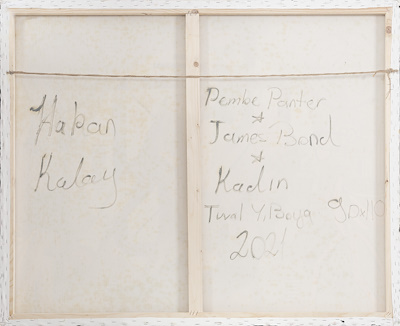 Hakan
Kalay
Pembe Panter
*
James Bond
*
Kadın
Tuval Y.Boya
2021